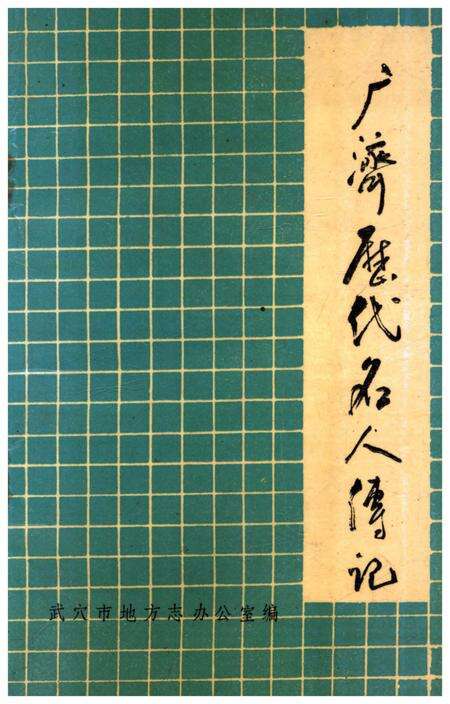 广濟歷代名人傳记
武穴市地方志办公室编